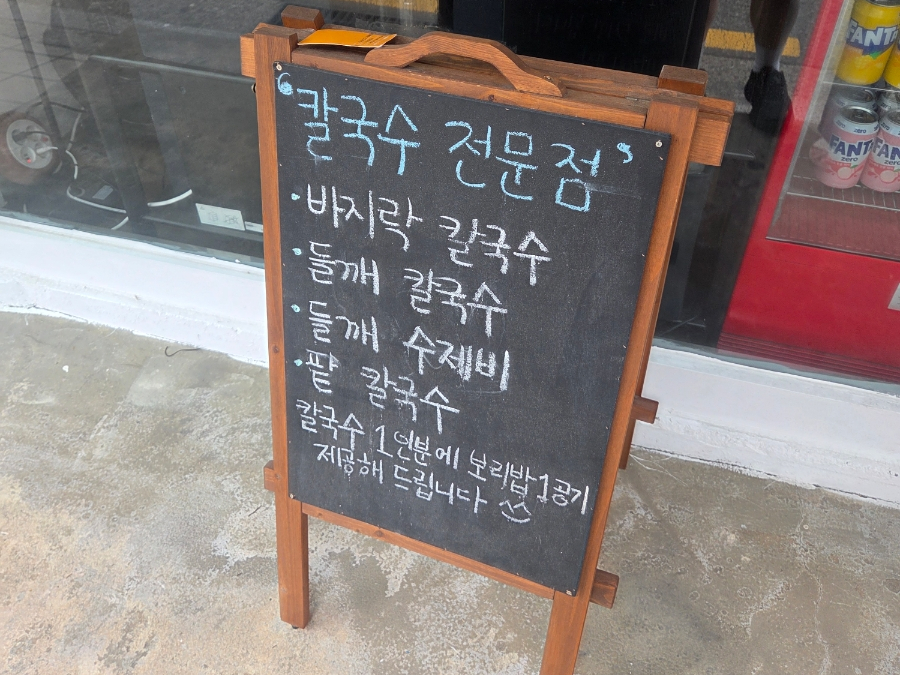 ‘칼국수 전문점’
· 바지락 칼국수
· 들깨 칼국수
· 들깨 수제비
· 팥 칼국수
칼국수 1인분에 보리밥 1공기
제공해 드립니다 ^^
FANTA
FANTA
zero
FANTA
zero